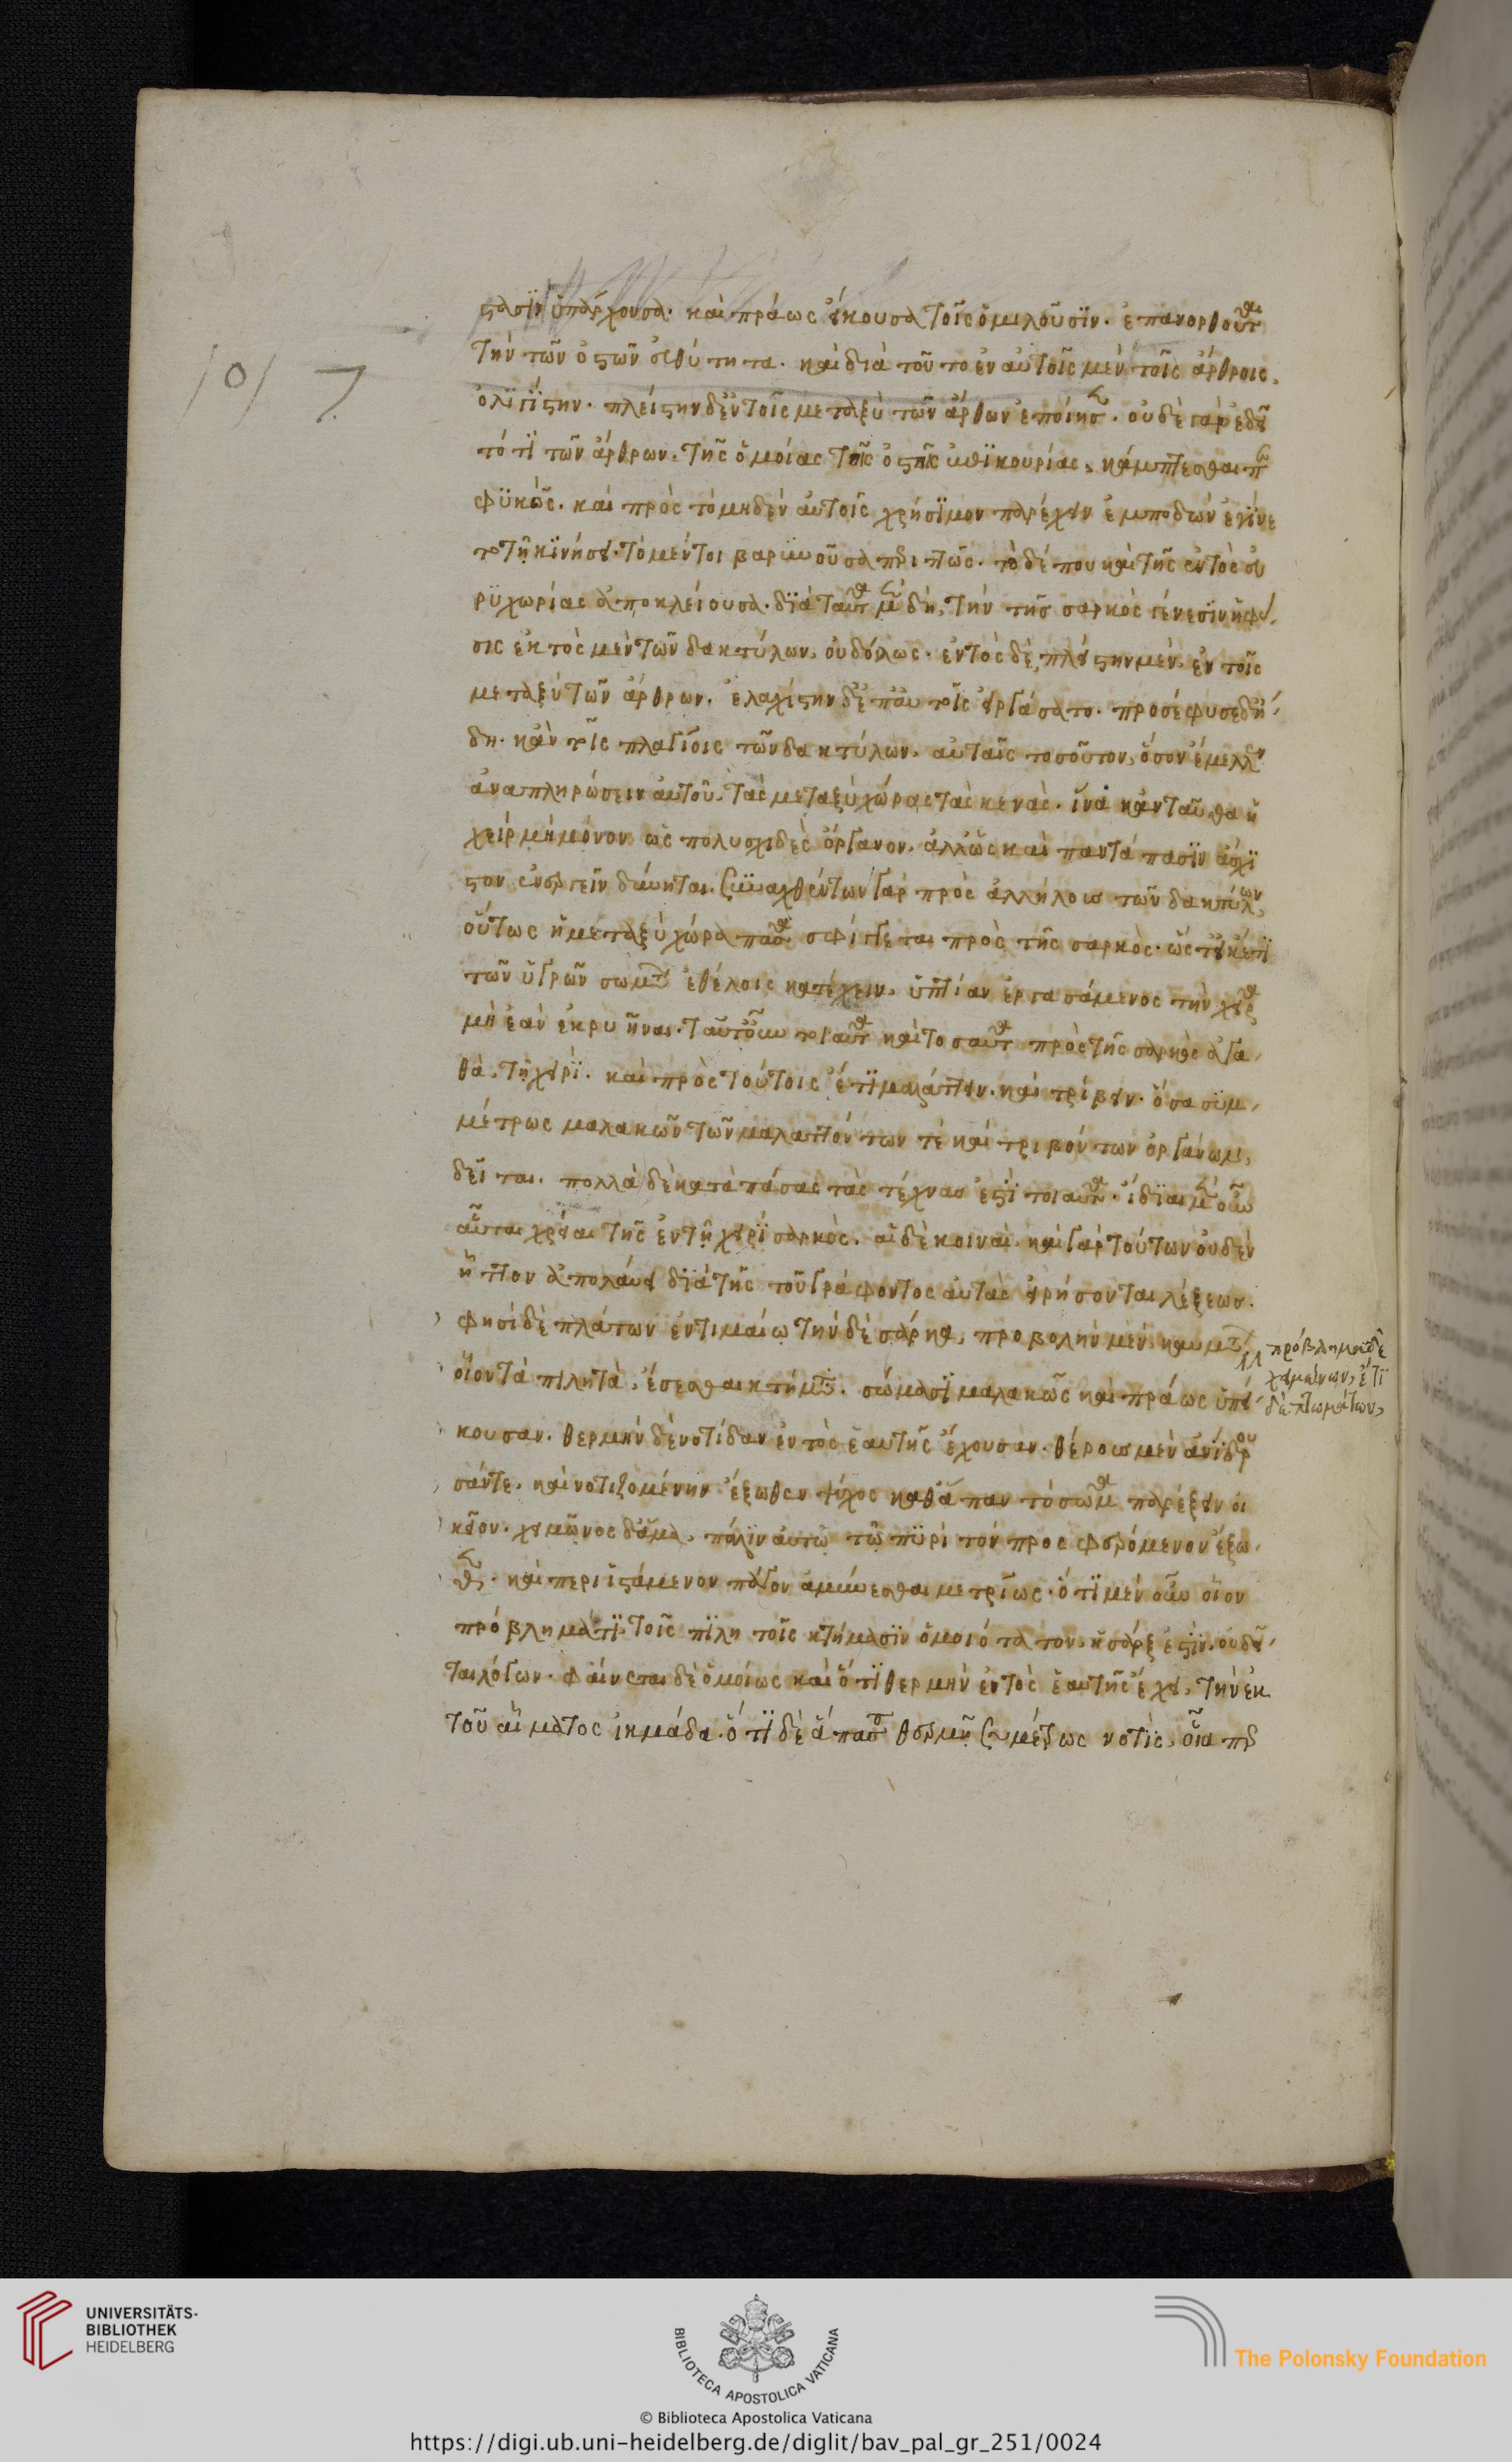 στασιν ὑπάρχουσα. καὶ πράως εἴκουσα τοῖς ὁμιλοῦσιν. ἐπανορθοῦται
τὴν τῶν ὀστῶν εὐθύτητα. καὶ διὰ τοῦτο ἐν αὐτοῖς μὲν τοῖς ἄρθροις,
ὀλιγίστην. πλείστην δ' ἐν τοῖς μεταξὺ τῶν ἄρθων ἐποίησεν. οὐδὲ γὰρ ἐδεῖ
τό τι τῶν ἄρθρων. τῆς ὁμοίας τοῖς ὀστοῖς ἐπικουρίας, κάμπτεσθαι
φυκώς. καὶ πρὸς τὸ μηδὲν αὐτοῖς χρήσιμον παρέχειν ἐμποδὼν ἐγίνε
το τῇ κινήσει. τὸ μέντοι βαρύνουσα περιττῶς. τὸ δέ που καὶ τῆς ἐντὸς εὐ
ρυχωρίας ἀποκλείουσα. διὰ ταῦτα μὲν δὴ, τὴν τῆς σαρκὸς γένεσιν ἡ φύ
σις ἐκτὸς μὲν τῶν δακτύλων, οὐδόλως. ἐντὸς δὲ, πλείστην μὲν, ἐν τοῖς
μεταξὺ τῶν ἄρθρων. ἐλαχίστην δ' ἐπ' αὐτοῖς εἰργάσατο. προσέφυσε δ' ἤ
δη. κἀν τοῖς πλαγίοις τῶν δακτύλων. αὐταῖς τοσοῦτον, ὅσον ἔμελλεν
ἀναπληρώσειν αὐτοῦ. τὰς μεταξὺ χώρας τὰς κενὰς. ἵνα κἀνταῦθα ἡ
χεὶρ μὴ μόνον ὡς πολυσχιδὲς ὄργανον. ἀλλ' ὡς καὶ παντάπασιν ἀσχι
στον ἐνεργεῖν δύνηται. συναχθέντων γὰρ πρὸς ἀλλήλους τῶν δακτύλων,
οὕτως ἡ μεταξὺ χώρα πᾶσα σφίγγεται πρὸς τῆς σαρκὸς. ὡς
τῶν ὑγρῶν σωμάτων ἐθέλοις κατέχειν. ὑπτίαν ἐργασάμενος τὴν χεῖρα
μὴ ἐὰν ἐκρυῆναι. ταῦτ' οὖν τοιαῦτα καὶ τοσαῦτα πρὸς τῆς σαρκὸς ἀγα
θὰ. τῇ χειρὶ. καὶ πρὸς τούτοις ἔτι μαλάττειν. καὶ τρίβειν. ὅσα συμ
μέτρως μαλακῶν τῶν μαλαττόντων τὲ καὶ τριβόντων ὀργάνων,
δεῖται. πολλὰ δὲ κατὰ πάσας τὰς τέχνας ἐστὶ τοιαῦτα. ἰδίαι μὲν οὖν
αὗται χρεῖαι τῆς ἐν τῇ χειρὶ σαρκὸς. αἱ δὲ κοιναὶ. καὶ γὰρ τούτων οὐδὲν
ἧττον ἀπολαύει διὰ τῆς τοῦ γράφοντος αὐτὰς εἰρήσονται λέξεως.
φησὶ δὲ πλάτων ἐν τιμαίω τὴν δὲ σάρκα, προβολὴν μὲν καυμάτων
οἷον τὰ πιλητὰ, ἔσεσθαι κτήματα. σώμασι μαλακῶς καὶ πράως ὑπεί
κουσαν. θερμὴν δὲ νοτίδαν ἐντὸς ἑαυτῆς ἔχουσαν. θέρους μὲν ἀνιδρου
σάντε. καὶ νοτιζομένην ἔξωθεν ψύχος καθάπαν τὸ σῶμα παρέξειν οἰ
κεῖον. χειμῶνος δ' ἅμα, πάλιν αὐτῶ τῶ πυρὶ τὸν προσφερόμενον ἔξω
θεν. καὶ περιϊστάμενον πάγον ἀμύνεσθαι μετρίως. ὅτι μὲν οὖν οἷον
πρόβλημά τι τοῖς πιλητοῖς κτήμασιν ὁμοιότατον, ἡ σάρξ ἐστιν. οὐ δεῖ
ται λόγων. φαίνεται δὲ ὁμοίως καὶ ὅτι θερμὴν ἐντὸς ἑαυτῆς ἔχει, τὴν ἐκ
τοῦ αἵματος ἰκμάδα. ὅτι δὲ ἅπασα θερμὴ συμμέτρως νοτὶς, οἵα περ
πρόβλημα δὲ
χειμώνων, ἔτι
δὲ πτωμάτων,
101 7
UNIVERSITÄTS-
BIBLIOTHEK
HEIDELBERG
BIBLIOTECA APOSTOLICA VATICANA
The Polonsky Foundation
© Biblioteca Apostolica Vaticana
https://digi.ub.uni-heidelberg.de/diglit/bav_pal_gr_251/0024